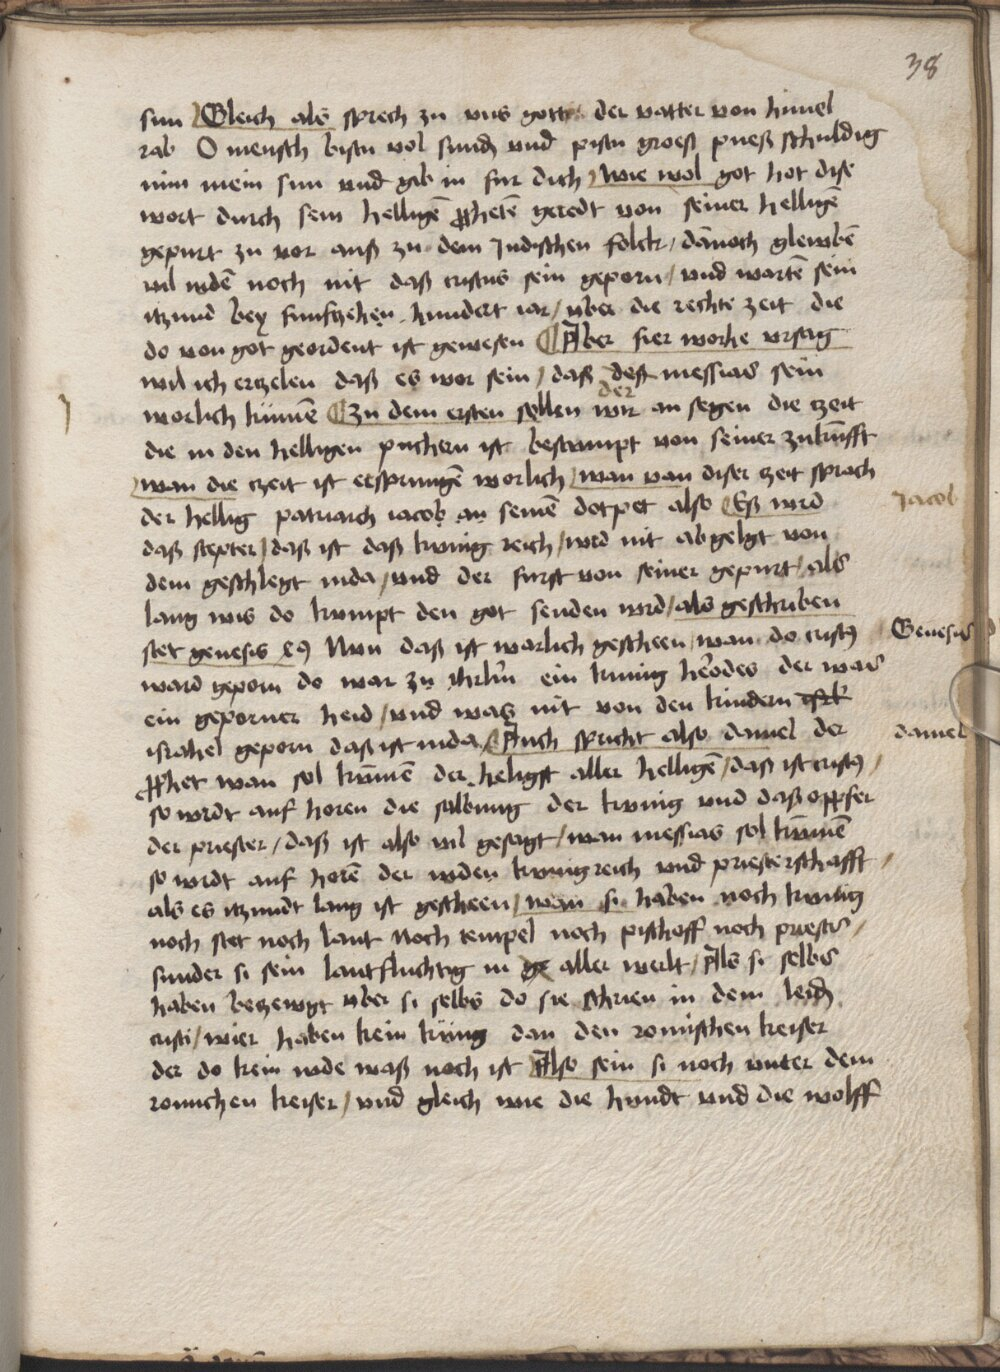 38
sun Gleich als sprech zu vns gott der vatter von himel
rab O mensch bistu vol sund vnd pistu groess puess schuldig
nim mein sun vnd gib in fur dich wie wol got hot dise
wort durch sein helligē ꝓhetē geredt von seiner helligē
gepurt zu vor auß zu dem Judischen folck / dānoch glewbē
vil iudē noch nit daß cristus sein geporn / vnd wartē sein
itzund bey funfzehen hundert iar / vber die rechte zeit die
do von got geordent ist gewesen Aber fier worhe vrsag
wil ich erzelen daß es wor sein / daß deß messias sein
der
worlich kumē Zu dem ersten sollen wir an segen die czeit
die in den helligen puchern ist bestimpt von seiner zukūfft
wan die czeit ist ersprungē worlich wan van diser czeit sprach
der hellig patriarch iacob an seinē dotpet also Eß wird
Jacob
daß scepter / daß ist daß kunig reich / wrd nit ab gelegt von
dem geschlegt iuda / vnd der furst von seiner gepurt / als
lang wis do kumpt den got senden wird / als geschriben
stet genesis 49 Nun daß ist warlich gescheen wan do cristꝰ
Genesis
ward geporn do war zu ihrlm ein kunig herodes der was
ein geporner heid / vnd was nit von den kindern
israhel geporn daß ist iuda Auch spricht also daniel der
daniel
ꝓhet wan sol kumē der heligst aller helligē / daß ist cristꝰ /
so wrdt auf horen die salbung der kunig vnd daß opffer
der priester / daß ist also vil gesagt / wan messias sol kumē
so wrdt auf horē der iuden kunigreich vnd priesterschafft /
als es itzundt lang ist gescheen / wan si haben noch kunig
noch stet noch lant Noch tempel noch pischoff noch priester /
sunder si sein lantfluchtig in aller werlt / Als si selbs
haben bezewgt vber si selbs do sie schrien in dem leidē
cristi / wier haben kein kunig dan den romischen keiser
der do kein iude waß noch ist Also sein si noch vnter dem
romichen keiser / vnd gleich wie die hundt vnd die wolff